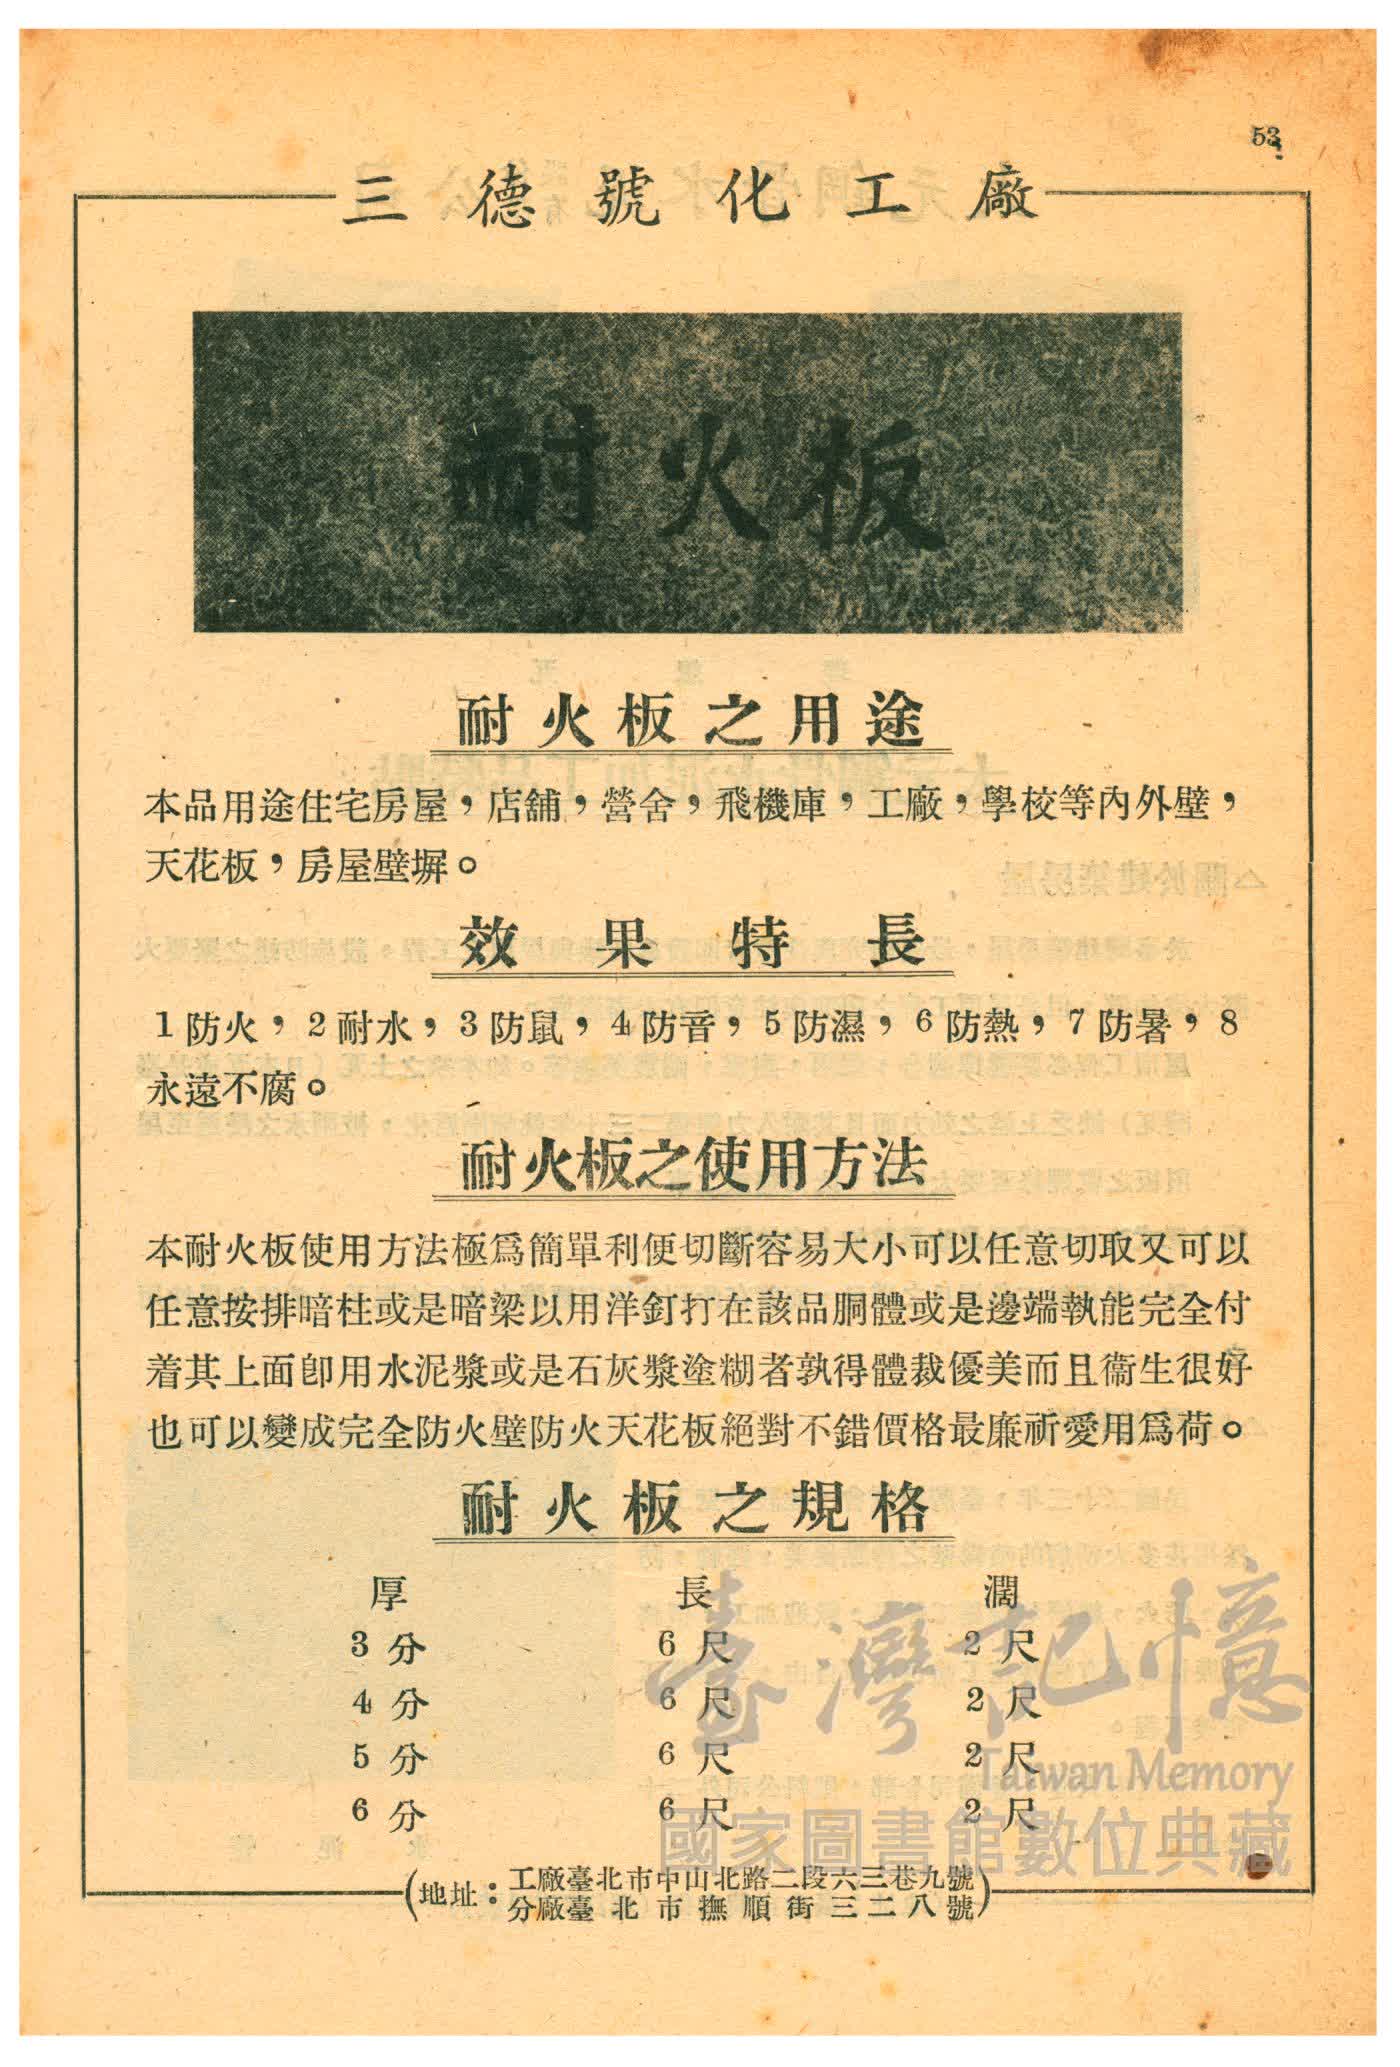 53
三德號化工廠
耐火板
耐火板之用途
本品用途住宅房屋，店舖，營舍，飛機庫，工廠，學校等內外壁，
天花板，房屋壁塀。
效果特長
1防火，2耐水，3防鼠，4防音，5防濕，6防熱，7防暑，8
永遠不腐。
耐火板之使用方法
本耐火板使用方法極爲簡單利便切斷容易大小可以任意切取又可以
任意按排暗柱或是暗梁以用洋釘打在該品胴體或是邊端執能完全付
着其上面卽用水泥漿或是石灰漿塗糊者孰得體裁優美而且衞生很好
也可以變成完全防火壁防火天花板絕對不錯價格最廉祈愛用爲荷。
耐火板之規格
厚 長 濶
3分 6尺 2尺
4分 6尺 2尺
5分 6尺 2尺
6分 6尺 2尺
(地址：工廠臺北市中山北路二段六三巷九號
分廠臺北市撫順街三二八號)
臺灣記憶
Taiwan Memory
國家圖書館數位典藏